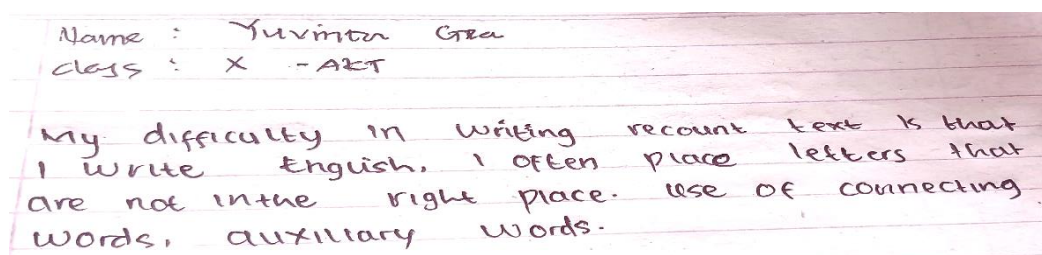 Name : Yuvinta Gea
class : X - AKT
My difficulty in writing recount text is that
I write English, I often place letters that
are not in the right place. use of connecting
words, auxiliary words.